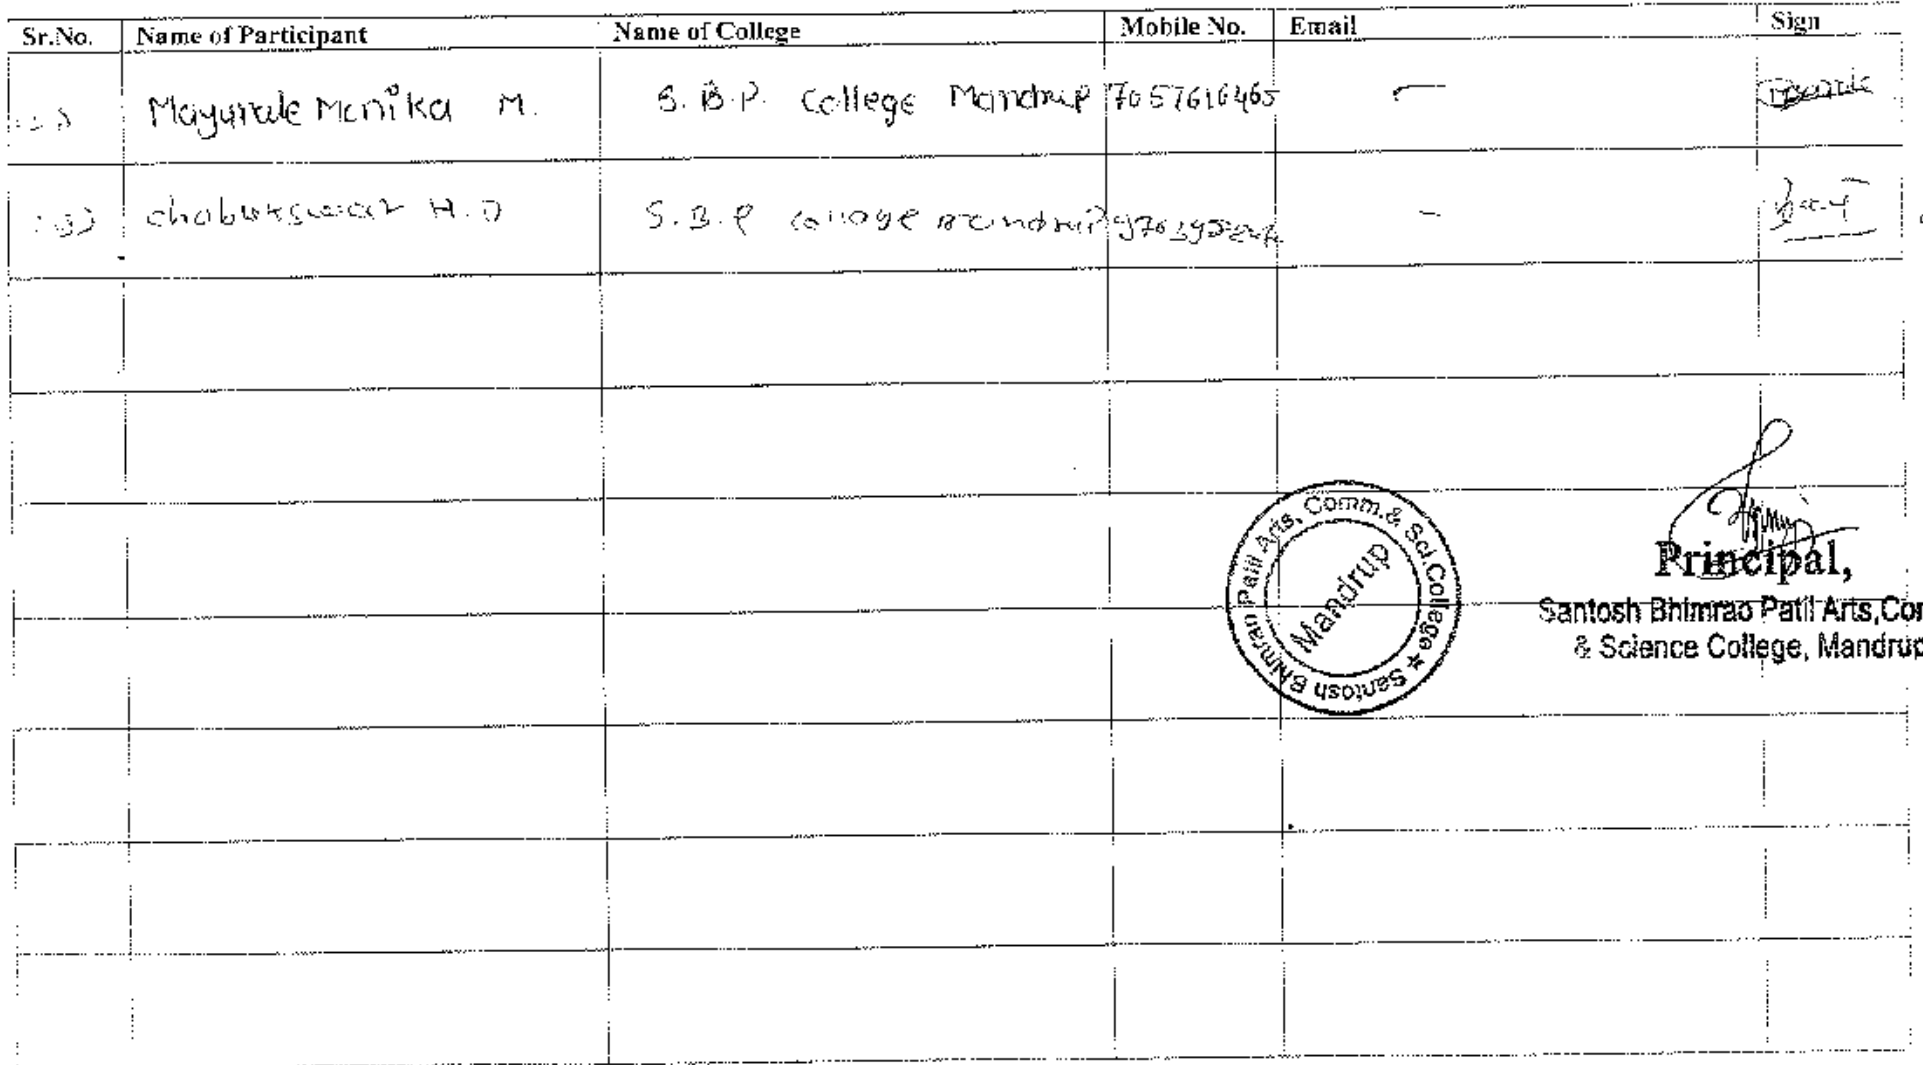 Sr.No. Name of Participant Name of College Mobile No. Email Sign
Mayurale Monika M. S.B.P. College Mandrup 7057616465 -
chabukswar H.D S.B.P college mandrup -
Patil Arts, Comm.& Sci.College ★ Santosh Bhimrao
Mandrup
Principal,
Santosh Bhimrao Patil Arts,Com
& Science College, Mandrup